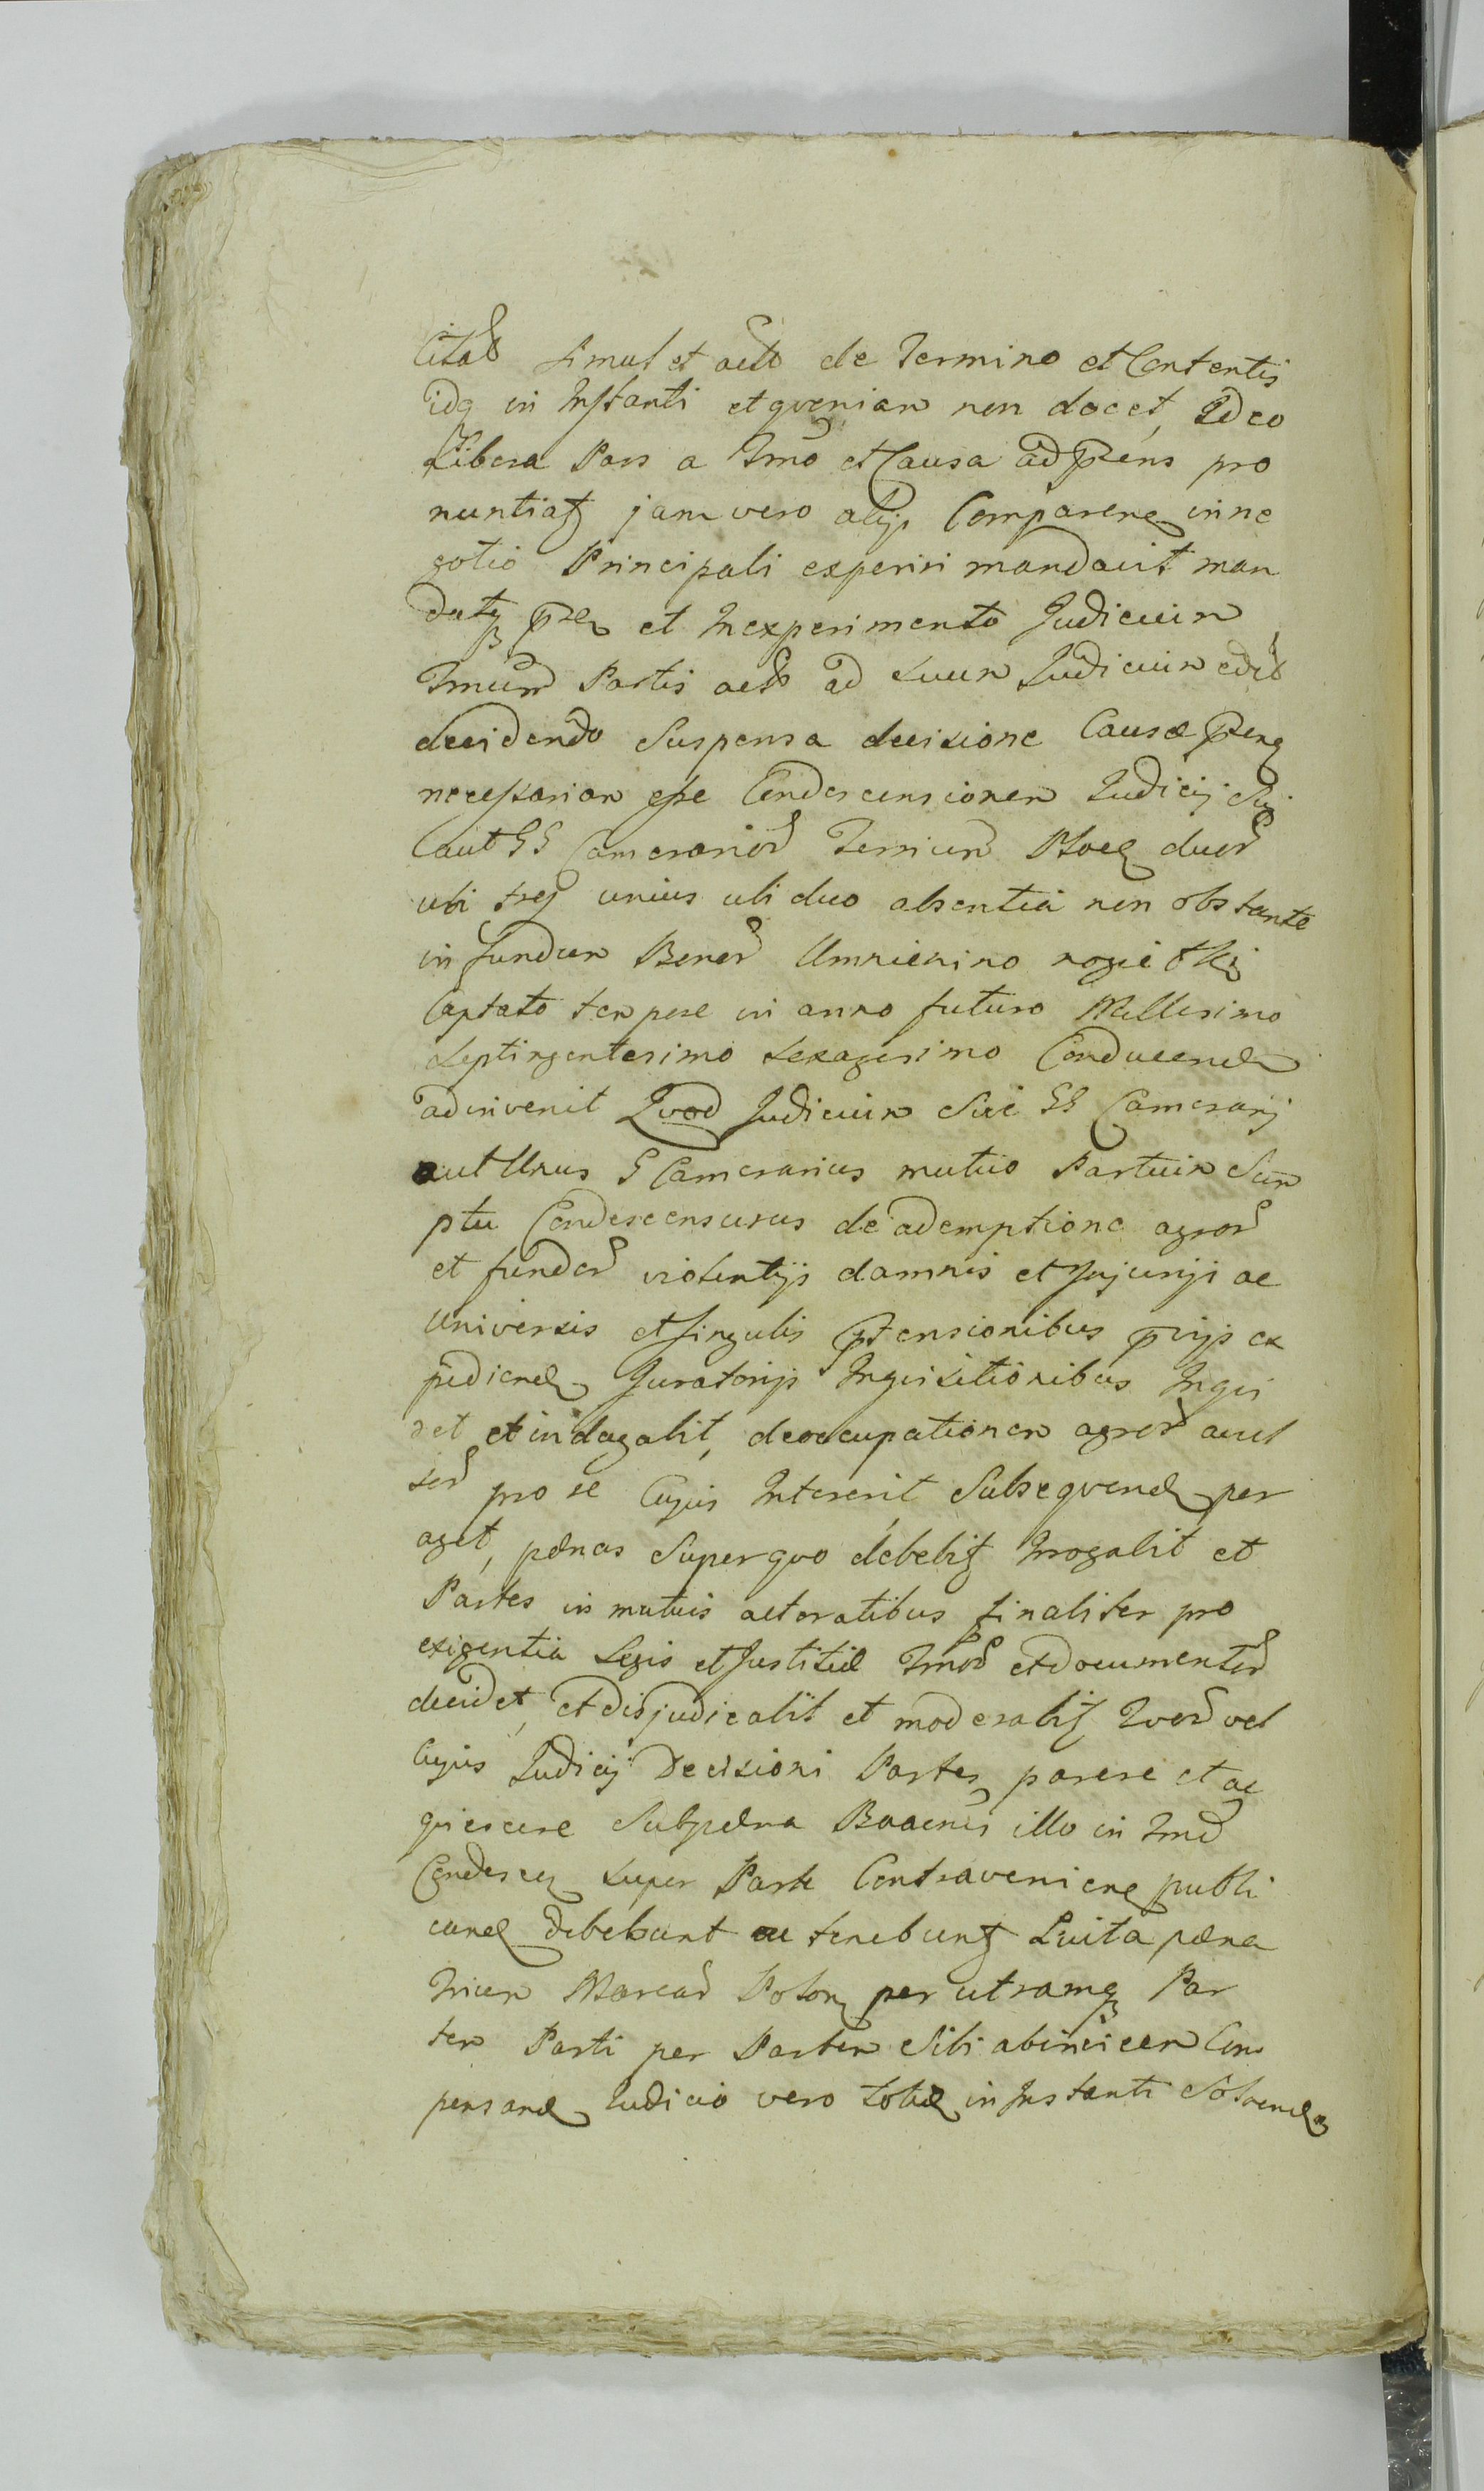 Citab simul et acto de Termino et Contentis
idq in Instanti et qveriam non docet, Ideo
Libera Pars a Tmo et Causa ad prens pro
nuntiatz jam vero alijs Comparen in ne
gotio Principali experiri mandavit man
datq pre et In experimento Judicium
Tmum Partis acto ad suum Judicium
decidendo Suspensa decisione Causæ pren
necessariam esse Condescensionem Judicij Sui
aut GG Camerariord Terrium duord
ubi tres unius ubi duo absentia non obstante
in fundum Bonord Umnienino
Captato tempore in anno futuro Millesimo
Septingentesimo sexagesimo Conducend
adinvenit Qvod Judicium Sive GG Camerarij
aut Unus G Camerarius mutuo Partium Sum
ptu Condescensurus de ademptione agrord
et fundord violentijs damnis et Injurijs ac
Universis et singulis prtensionibus prvijs ex
pediend Juratorijs Inqvisitionibus Inqvi
ret et indagabit, deoccupationem agrord avul
sord pro se Cujus Intererit Subseqvend per
aget, pænas Super qvo debebitz Irrogabit et
Partes in mutuis actoratibus finaliter pro
exigentia Legis et Justitiæ Tmord et documentord
decidet, et disjudicabit et moderabitz Qvord vel
Cujus Judicij Decisioni Partes parere et ac
qviescere Sub pæna Bannis illo in Tmo
Condescen super Parte Contravenien publi
cand debebunt ac tenebuntz Luita pæna
Trium Marcard Polon per utramq Par
tem Parti per Partem Sibi abinvicem Com
pensand Judicio vero totid in Instanti Solvend